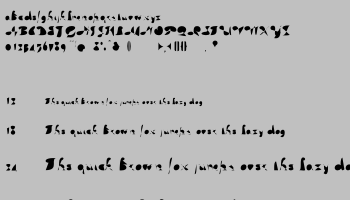 abcdefghijklmnopqrstuvwxyz
ABCDEFGHIJKLMNOPQRSTUVWXYZ
0123456789
12 The quick brown fox jumps over the lazy dog
18 The quick brown fox jumps over the lazy dog
24 The quick brown fox jumps over the lazy do